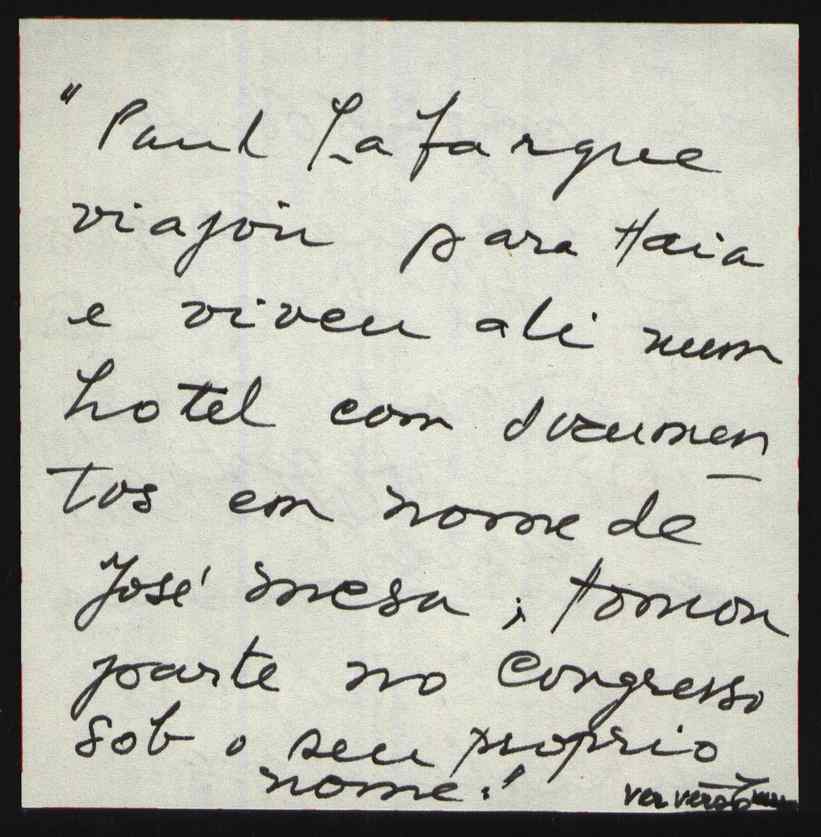 "Paul Lafargue
viajou para Haia
e viveu ali num
hotel com documen
tos em nome de
José Mesa; tomou
parte no Congresso
sob o seu proprio
nome."
ver verso